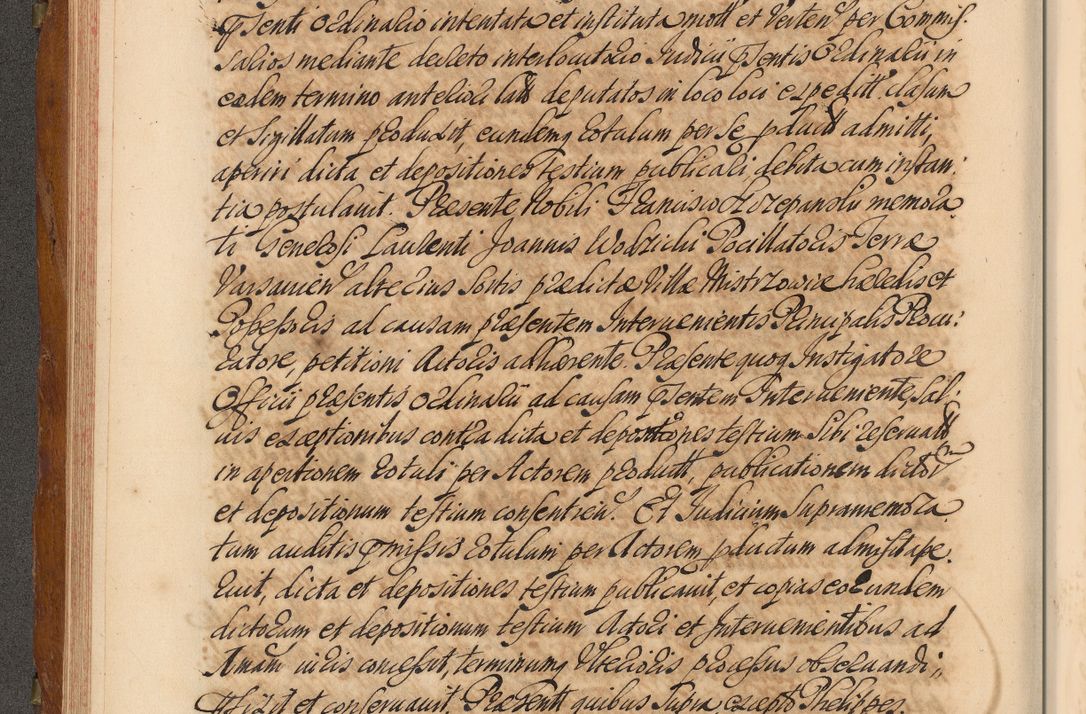 Psenti Ordinario intentata et instituta mott et Verten per Commis¬
sarios mediante decreto interlocutorio Judicii Psentis Ordinarii in
eodem termino anteriori latt deputatos in loco loci expeditt clasum
et Sigillatum produxit, eundemq rotulum per Se pductt admitti,
aperiri dicta et depositiones Testium publicari debita cum instan:
tia postulavit. Præsente Nobili Francisco Szczepanski memora
ti Generosi Laurenti Joannis Wolzicki Pocillatoris Terræ
Varsavien alterius Sortis prædictæ Villæ Mistrzowice hæredis et
Possessoris ad causam præsentem Intervenientis Principalis Procu:
ratore, petitioni Actoris adhærente. Præsente quoq Instigatore
Officii præsentis Ordinarii ad causam Psentem Interveniente, Sal:
vis exceptionibus contra dicta et depositiones testium Sibi reservatt
in apertionem rotuli per Actorem productt, publicationem dictor
et depositionum testium consentien. Et Judicium Supramemora
tum auditis Pmissis rotulum per Actorem pductum admisit ape
ruit, dicta et depositiones testium publicavit, et copias eorundem
dictorum et depositionum testium Actori et Intervenientibus ad
Anam viris concessit, terminumq Ulterioris processus observandi
fixit et conservavit. Præsentt quibus Supra excepto Philippo